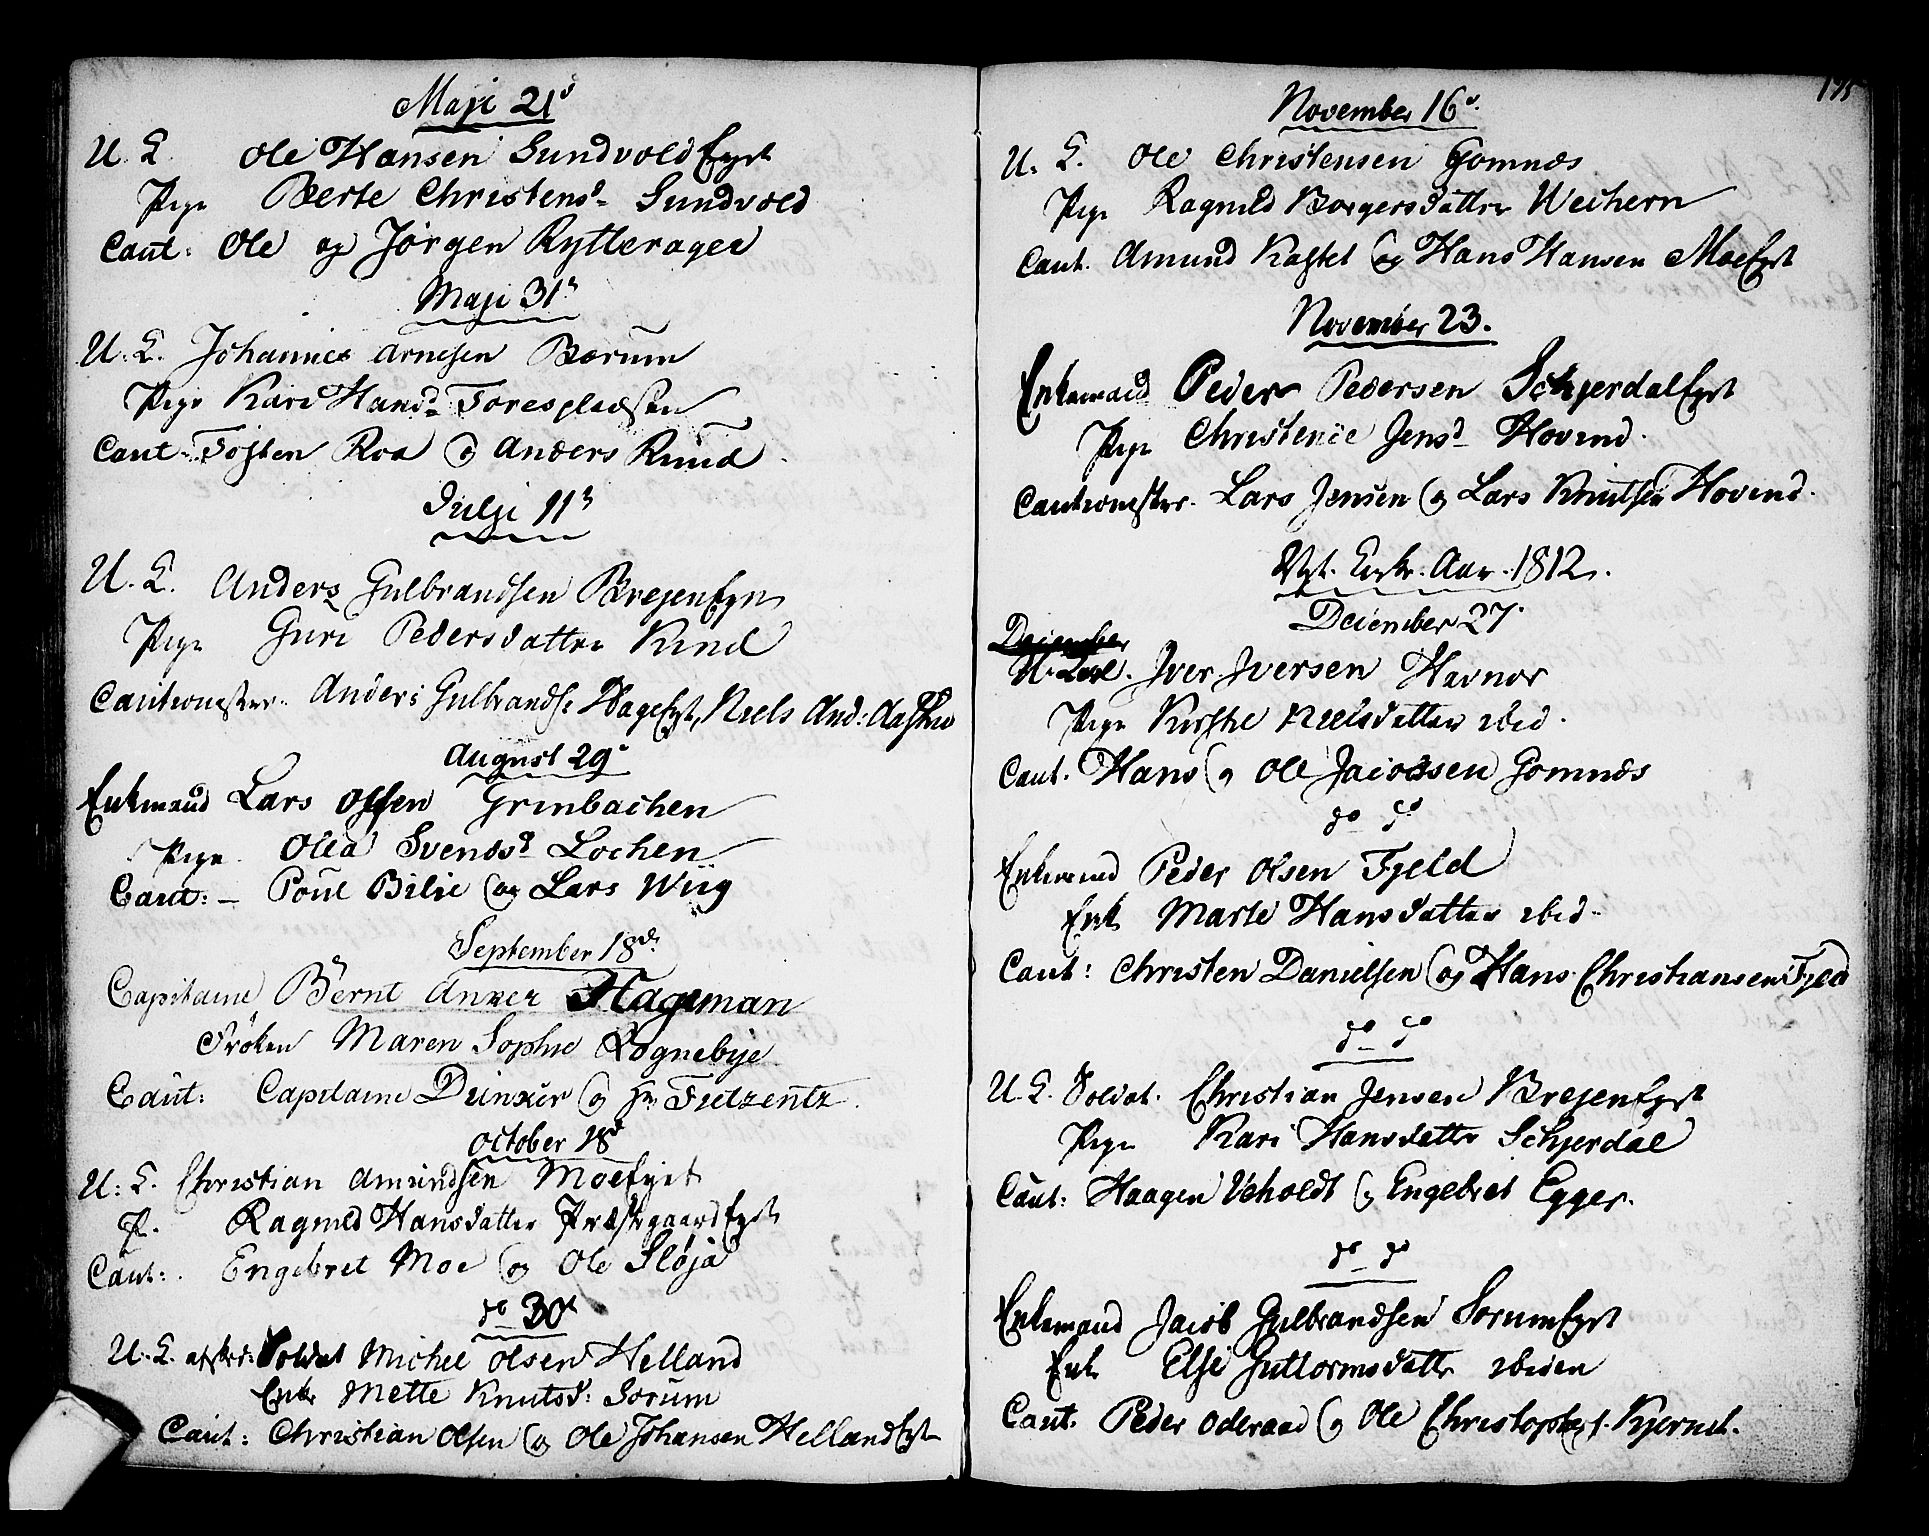 Maji 21d
U. K. Ole Hansen Sundvold Eyet
Pige Berte Christensd. Sundvold
Caut: Ole og Jørgen Rytterager
Maji 31
U. K. Johannes Arnesen Bærum
Pige Kari Hansd.
Caut. Tosten Roa og Anders Ruud
Julji 11
U. K. Anders Gulbrandsen Brejen Eyn
Pige Guri Pedersdatter Ruud
Cautionister. Anders Gulbrands: Hage Eyt, Niels And:
August 29
Enkemand Lars Olsen Grinbachen
Pige Olea Svends. Lochen
Caut: - Poul Bilie og Lars Wiig
September 18de
Capitaine Bernt Anker Hageman
Frøken Maren Sophie Røgnebye
Caut: Capitaine Dunker og Hr.
October 18
U: K. Christian Amundsen Moe Eyet
P. Ragnild Hansdatter Præstegaard Eyet
Caut: Engebret Moe og Ole Sløja
do 30
U. K. afsked: Soldat Michel Olsen Helland
Enke Mette Knutsd: Sørum
Caut: Christian Olsen og Ole Johansen Helland Eyt
175
November 16
U. K. Ole Christensen Gomnæs
Pige Ragnild Borgersdatter Weihern
Caut. Amund Kastet og Hans Hansen Moe Eyet
November 23.
Enkemand Peder Pedersen Schjerdal Eyet
Pige Christense Jensd Hovind.
Cautionister. Lars Jensen og Lars Knutsen Hovind.
Nyt. Kirke. Aar. 1812.
December 27
December
U. Karl. Iver Iversen Havnor
Pige Kirstie Nielsdatter ibid.
Caut. Hans og Ole Jacobsen Gomnæs
do do
Enkemand Peder Olsen Fjeld
Enk Marte Hansdatter ibid.
Caut: Christen Danielsen og Hans Christiansen Fjeld
do do
U. K. Soldat. Christian Jensen Brejen Eyet
Pige Kari Hansdatter Schjerdal
Caut: Haagen Veholdt og Engebret Egger.
do do
Enkemand Jacob Gulbrandsen Sørum Eyet
Enk Elsi Guttormsdatt ibiden
Caut. Peder Oderaad og Ole Christophers. Kjernet.